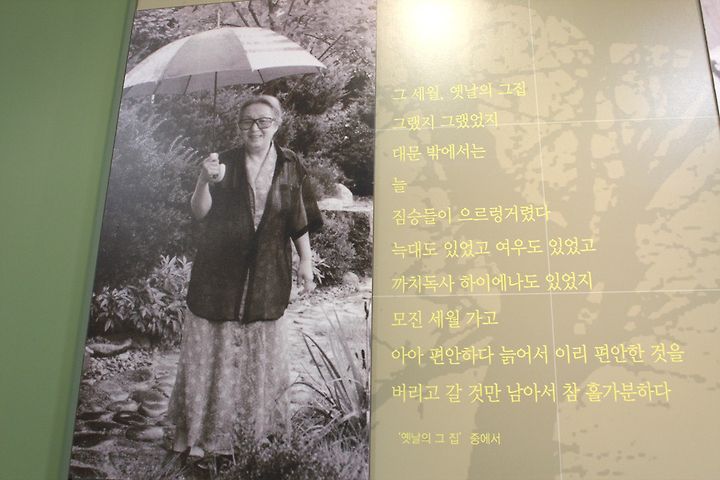 그 세월, 옛날의 그집
그랬지 그랬었지
대문 밖에서는
늘
짐승들이 으르렁거렸다
늑대도 있었고 여우도 있었고
까치독사 하이에나도 있었지
모진 세월 가고
아아 편안하다 늙어서 이리 편안한 것을
버리고 갈 것만 남아서 참 홀가분하다
‘옛날의 그 집’ 중에서